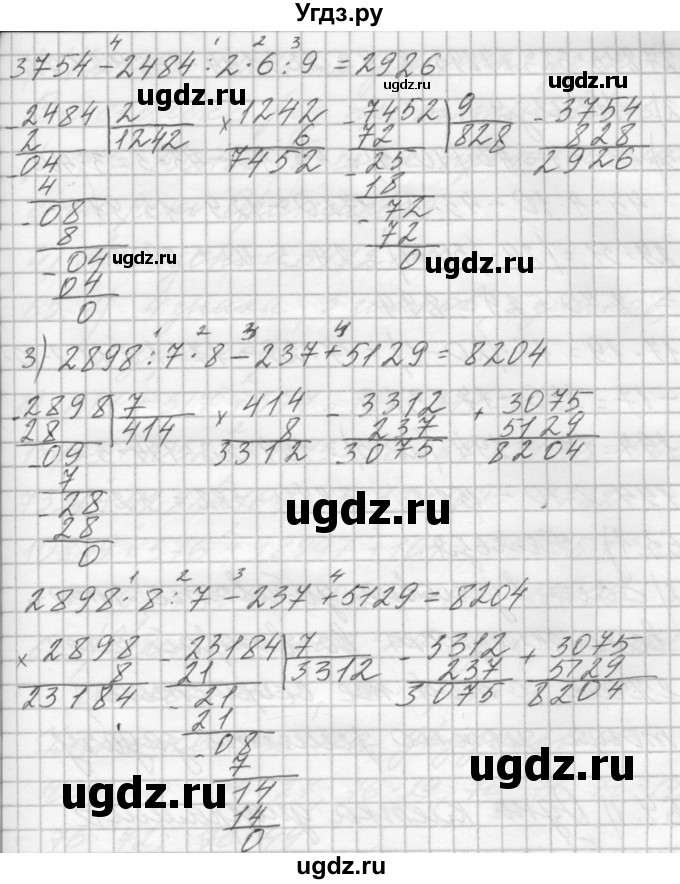 Угдз.ру
4 1 2 3
3754-2484:2·6:9=2926
-2484 2 ×1242 -7452 9 -3754
2 1242 6 72 828 828
-04 7452 -25 2926
4 18
-08 -72
8 72
-04 0
04
0
1 2 3 4
3) 2898:7·8-237+5129=8204
-2898 7 ×414 -3312 +3075
28 414 8 237 5129
-09 3312 3075 8204
7
-28
28
0
1 2 3 4
2898·8:7-237+5129=8204
×2898 -23184 7 -3312 +3075
8 21 3312 237 5129
23184 -21 3075 8204
21
-08
7
14
14
0
ugdz.ru
ugdz.ru
ugdz.ru
ugdz.ru
ugdz.ru
ugdz.ru
ugdz.ru
ugdz.ru
ugdz.ru
ugdz.ru